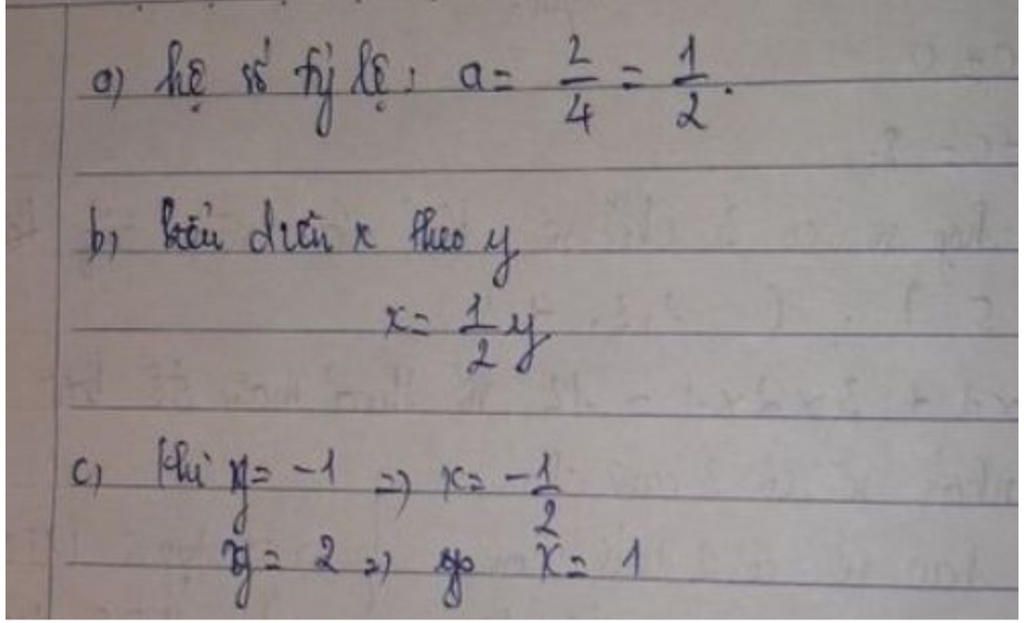 a) hệ số tỷ lệ: a = 2/4 = 1/2.
b) biểu diễn x theo y
x = 1/2 y
c) khi y = -1 => x = -1/2
y = 2 => x = 1